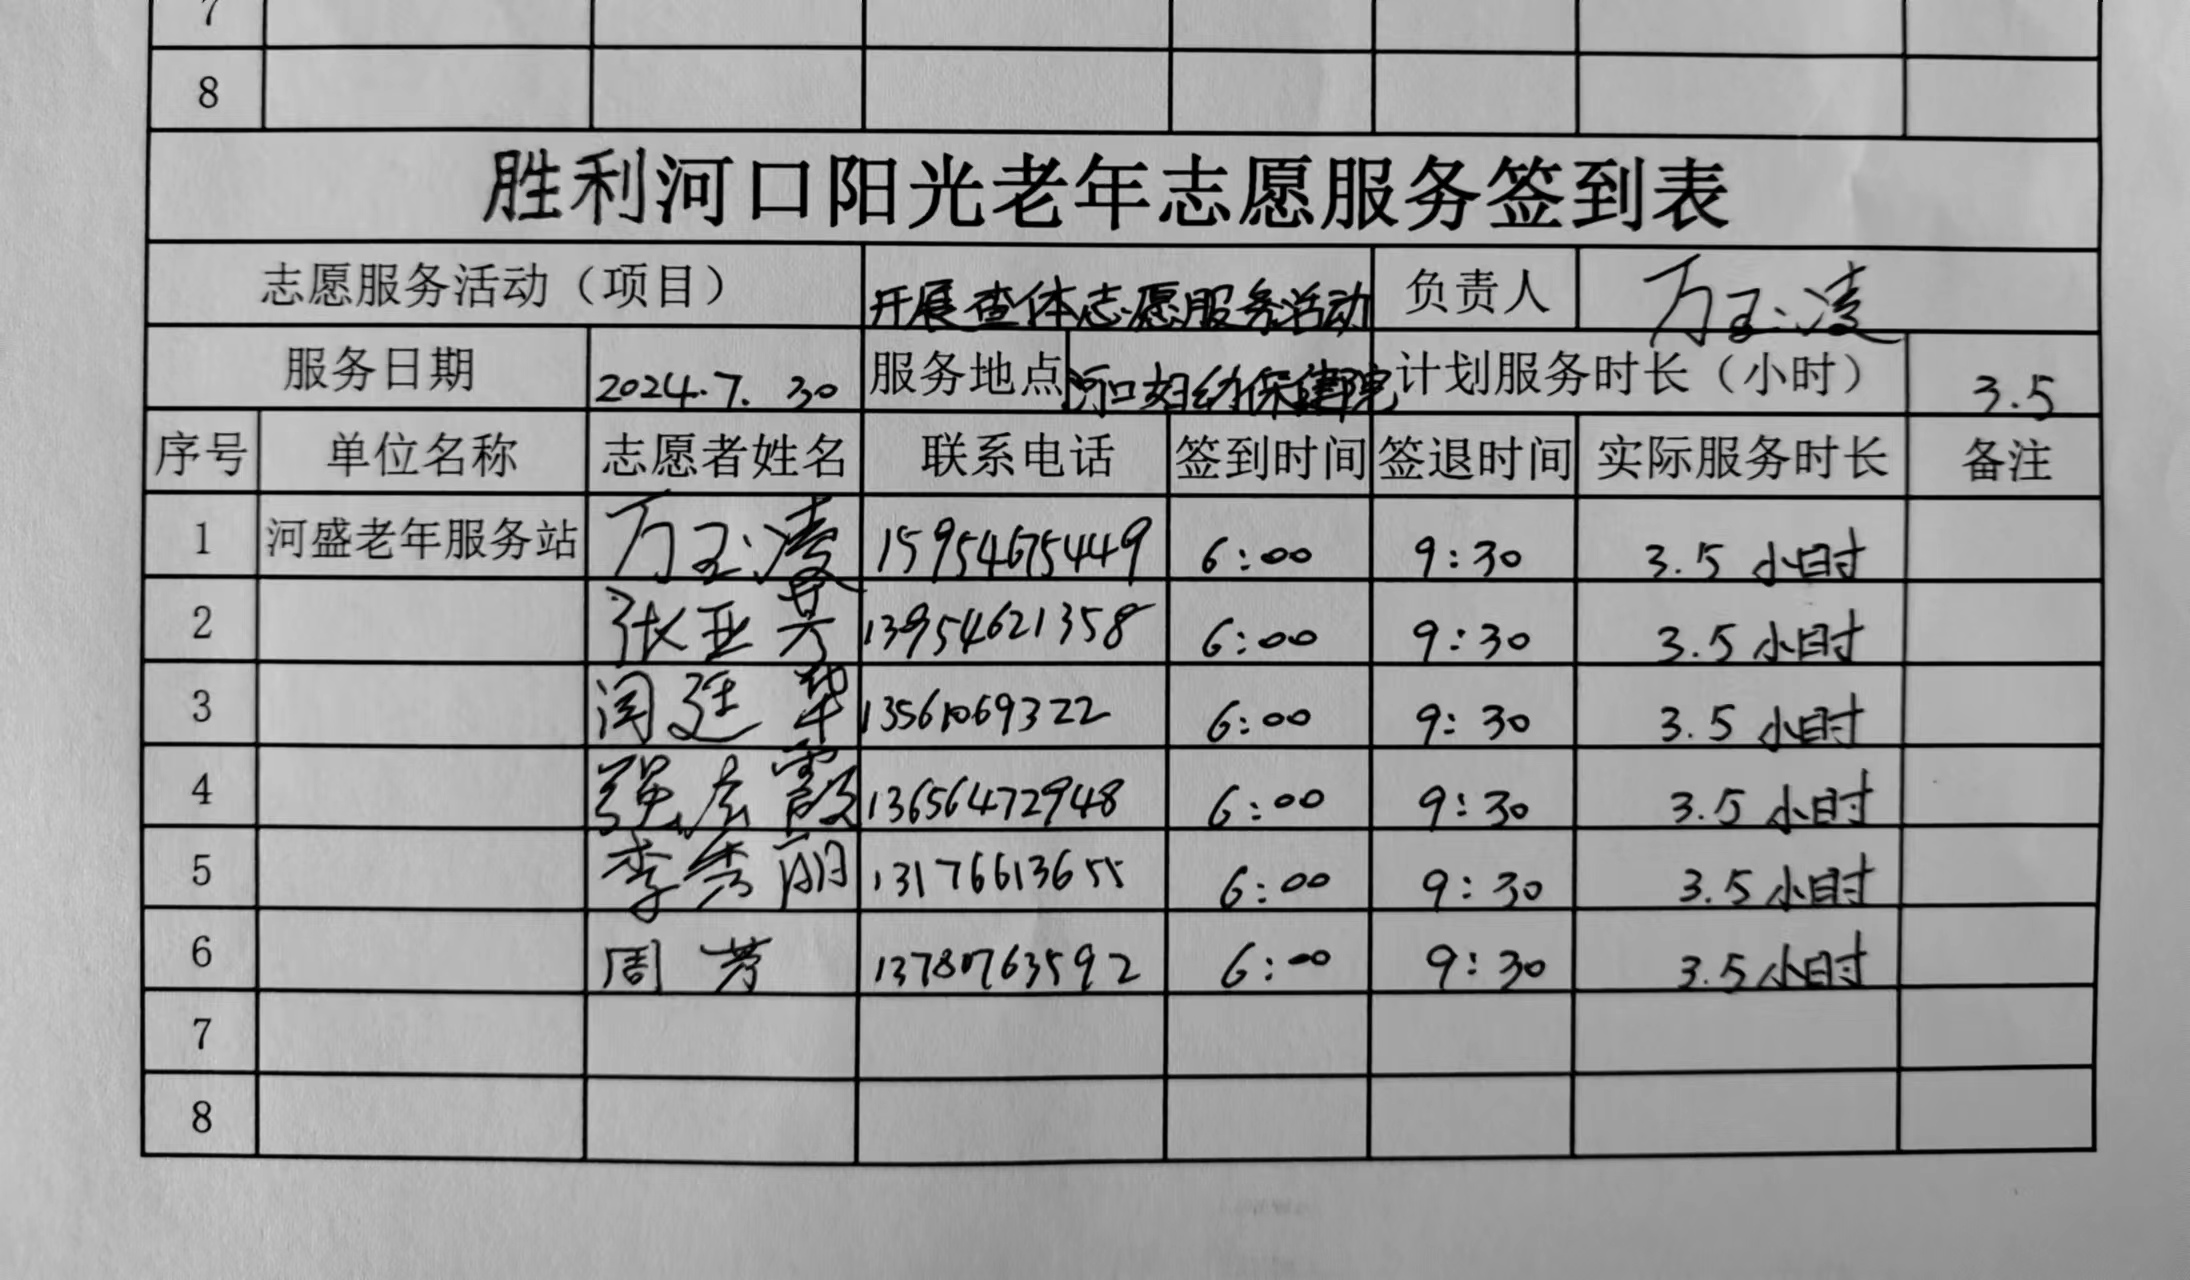 7
8
胜利河口阳光老年志愿服务签到表
志愿服务活动（项目） 开展查体志愿服务活动 负责人 万玉凌
服务日期 2024.7.30 服务地点 河口妇幼保健院 计划服务时长（小时） 3.5
序号 单位名称 志愿者姓名 联系电话 签到时间 签退时间 实际服务时长 备注
1 河盛老年服务站 万玉凌 15954675449 6:00 9:30 3.5 小时
2 张亚男 13954621358 6:00 9:30 3.5 小时
3 闫廷华 13561069322 6:00 9:30 3.5 小时
4 强宏霞 13656472948 6:00 9:30 3.5 小时
5 李秀丽 13176613655 6:00 9:30 3.5 小时
6 周芳 13780763592 6:00 9:30 3.5 小时
7
8